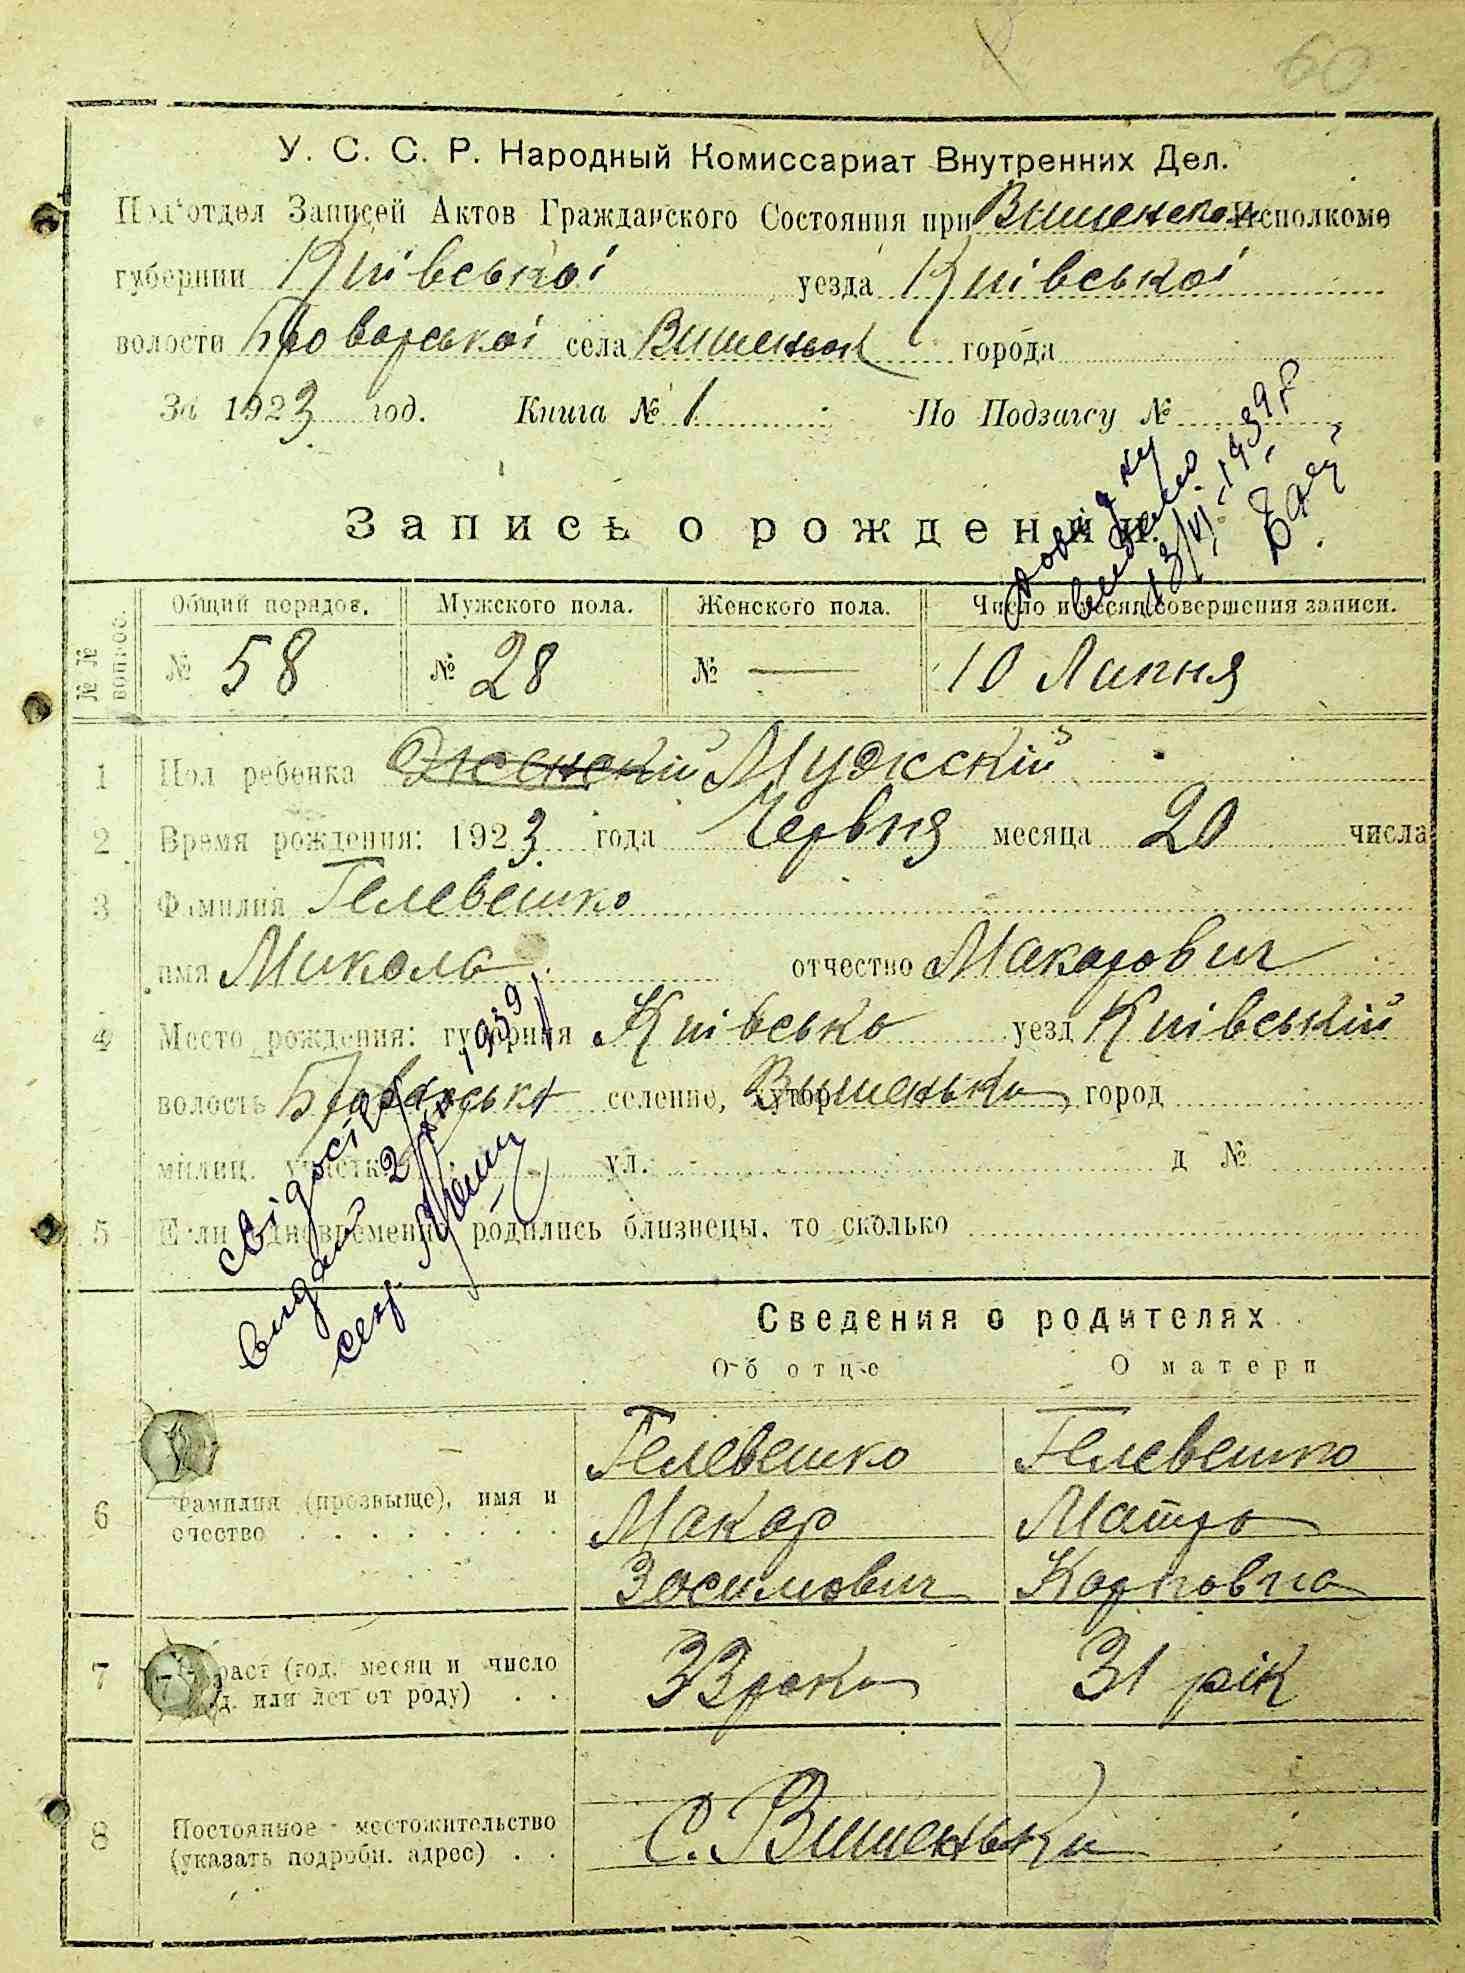 60
У. С. С. Р. Народный Комиссариат Внутренних Дел.
Под'отдел Записей Актов Гражданского Состояния при Вишенском Исполкоме
губернии Київської уезда Київської
волости Броварської села Вишеньок города
За 1923 год. Книга № 1 По Подзагсу №
довідку
видано
13/VI-1939 р
Запись о рождении
№№ вопрос. Общий порядов. Мужского пола. Женского пола. Число и месяц совершения записи.
№ 58 № 28 № — 10 Липня
1 Пол ребенка Женскій Мужскій
2 Время рождения: 1923 года Червня месяца 20 числа
3 Фамилия Гелевешко
имя Микола отчество Макарович
4 Место рождения: губерния Київська уезд Київській
волость Броварська селение, хутор Вышеньки город
милиц. участка ул. д №
5 Если одновременно родились близнецы, то сколько
свідоцт
видан 2 1939
секр.
Сведения о родителях
Об отце О матери
6 Фамилия (прозвыще), имя и Гелевешко Гелевешко
очество Макар Матро
Зосимович Карповна
7 раст (год. месяц и число 33 роки 31 рік
д. или лет от роду)
8 Постоянное местожительство
(указать подробн. адрес) С. Вишеньки